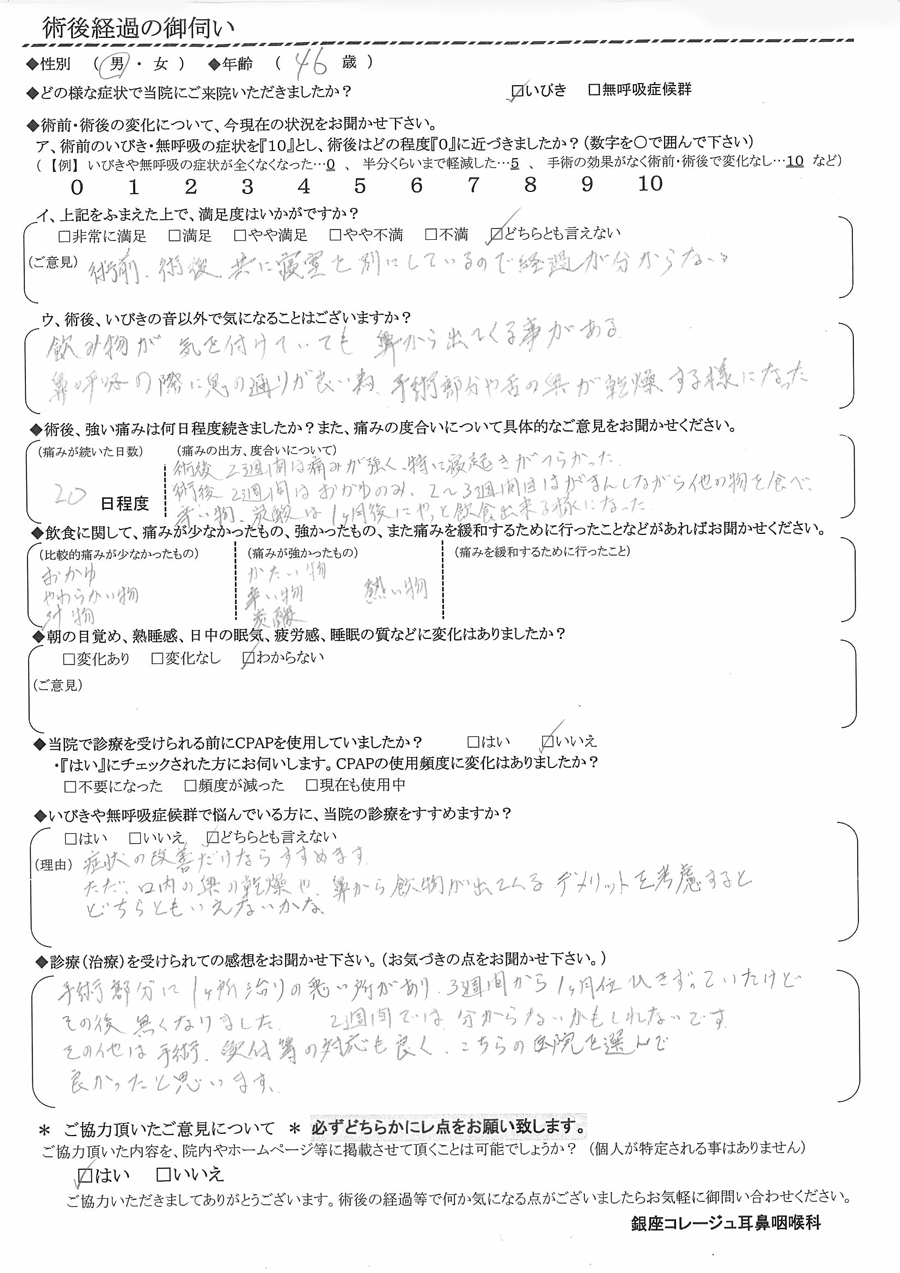 術後経過の御伺い
◆性別 （ 男 ・ 女 ） ◆年齢 （ 46 歳 ）
◆どの様な症状で当院にご来院いただきましたか？ ☑いびき □無呼吸症候群
◆術前・術後の変化について、今現在の状況をお聞かせ下さい。
ア、術前のいびき・無呼吸の症状を『10』とし、術後はどの程度『0』に近づきましたか？（数字を〇で囲んで下さい）
（ 【例】 いびきや無呼吸の症状が全くなくなった…0 、 半分くらいまで軽減した…5 、 手術の効果がなく術前・術後で変化なし…10 など）
0 1 2 3 4 5 6 7 8 9 10
イ、上記をふまえた上で、満足度はいかがですか？
□非常に満足 □満足 □やや満足 □やや不満 □不満 ☑どちらとも言えない
（ご意見） 術前、術後 共に寝室を別にしているので経過が分からない。
ウ、術後、いびきの音以外で気になることはございますか？
飲み物が 気を付けていても 鼻から出てくる事がある
鼻呼吸の際に息の通りが良い為、手術部分や舌の奥が乾燥する様になった
◆術後、強い痛みは何日程度続きましたか？また、痛みの度合いについて具体的なご意見をお聞かせください。
（痛みが続いた日数） （痛みの出方、度合いについて）
術後 2、3週間は痛みが強く、特に寝起きがつらかった。
20 日程度 術後 2週間はおかゆのみ、2～3週間目はがまんしながら他の物を食べ、
辛い物、炭酸は1ヶ月後にやっと飲食出来る様になった
◆飲食に関して、痛みが少なかったもの、強かったもの、また痛みを緩和するために行ったことなどがあればお聞かせください。
（比較的痛みが少なかったもの） （痛みが強かったもの） （痛みを緩和するために行ったこと）
おかゆ かたい物
やわらかい物 辛い物 熱い物
汁物 炭酸
◆朝の目覚め、熟睡感、日中の眠気、疲労感、睡眠の質などに変化はありましたか？
□変化あり □変化なし ☑わからない
（ご意見）
◆当院で診療を受けられる前にCPAPを使用していましたか？ □はい ☑いいえ
・『はい』にチェックされた方にお伺いします。CPAPの使用頻度に変化はありましたか？
□不要になった □頻度が減った □現在も使用中
◆いびきや無呼吸症候群で悩んでいる方に、当院の診療をすすめますか？
□はい □いいえ ☑どちらとも言えない
（理由） 症状の改善だけならすすめます
ただ、口内の奥の乾燥や、鼻から飲物が出てくるデメリットを考慮すると
どちらともいえないかな、
◆診療（治療）を受けられての感想をお聞かせ下さい。（お気づきの点をお聞かせ下さい。）
手術部分に1ヶ所治りの悪い所があり、3週間から1ヶ月位ひきずっていたけど
その後 無くなりました。 2週間では、分からないかもしれないです
その他は手術、受付等の対応も良く、こちらの医院を選んで
良かったと思います。
＊ ご協力頂いたご意見について ＊ 必ずどちらかにレ点をお願い致します。
ご協力頂いた内容を、院内やホームページ等に掲載させて頂くことは可能でしょうか？ （個人が特定される事はありません）
☑はい □いいえ
ご協力いただきましてありがとうございます。術後の経過等で何か気になる点がございましたらお気軽に御問い合わせください。
銀座コレージュ耳鼻咽喉科